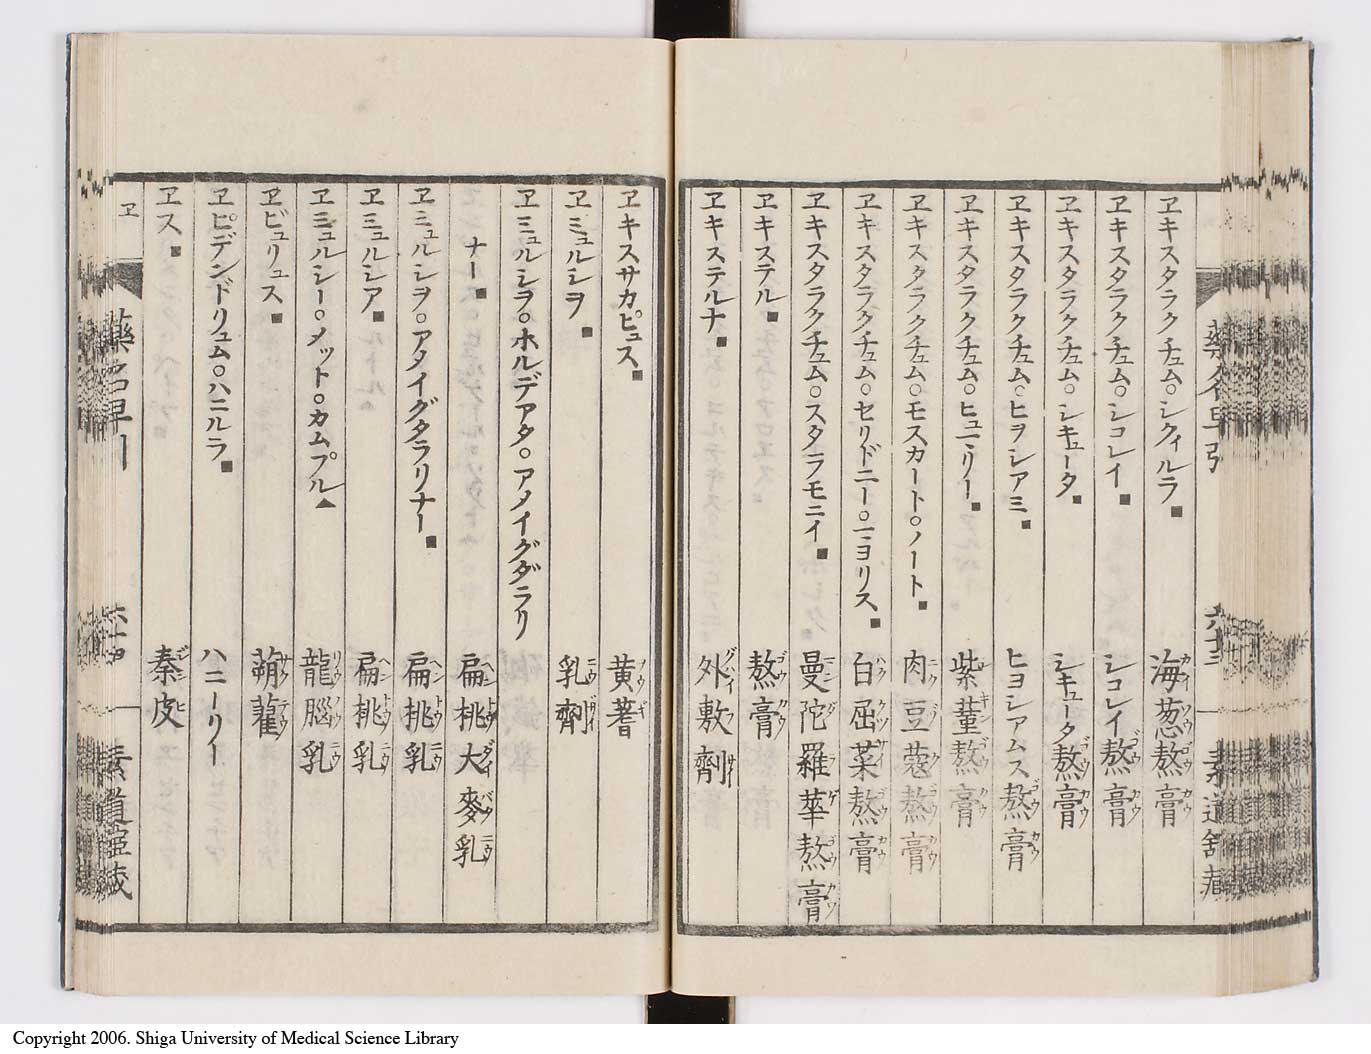 藥名早引 六十三 素道舍藏
ヱキスタラクチュム○シクィルラ■ 海葱熬膏
ヱキスタラクチュム○シコレイ■ シコレイ熬膏
ヱキスタラクチュム○シキュータ■ シキュータ熬膏
ヱキスタラクチュム○ヒヲシアミ■ ヒヨシアムス熬膏
ヱキスタラクチュム○ヒュミリー■ 紫菫熬膏
ヱキスタラクチュム○モスカート○ノート■ 肉豆蔻熬膏
ヱキスタラクチュム○セリドニー○ニヨリス■ 白屈菜熬膏
ヱキスタラクチュム○スタラモニイ■ 曼陀羅華熬膏
ヱキステル■ 熬膏
ヱキステルナ■ 外敷劑
ヱキスサカピュス■ 黄蓍
ヱミュルシヲ■ 乳劑
ヱミュルシヲ○ホルデアタ○アメイグダラリ
ナー■ 扁桃大麥乳
ヱミュルシヲ○アメイグダラリナー■ 扁桃乳
ヱミュルシア■ 扁桃乳
ヱミュルシー○メット○カムプル▲ 龍腦乳
ヱビュリュス■ 蒴藋
ヱピデンドリュム○ハニルラ■ ハニーリー
ヱス■ 秦皮
ヱ 藥名早引